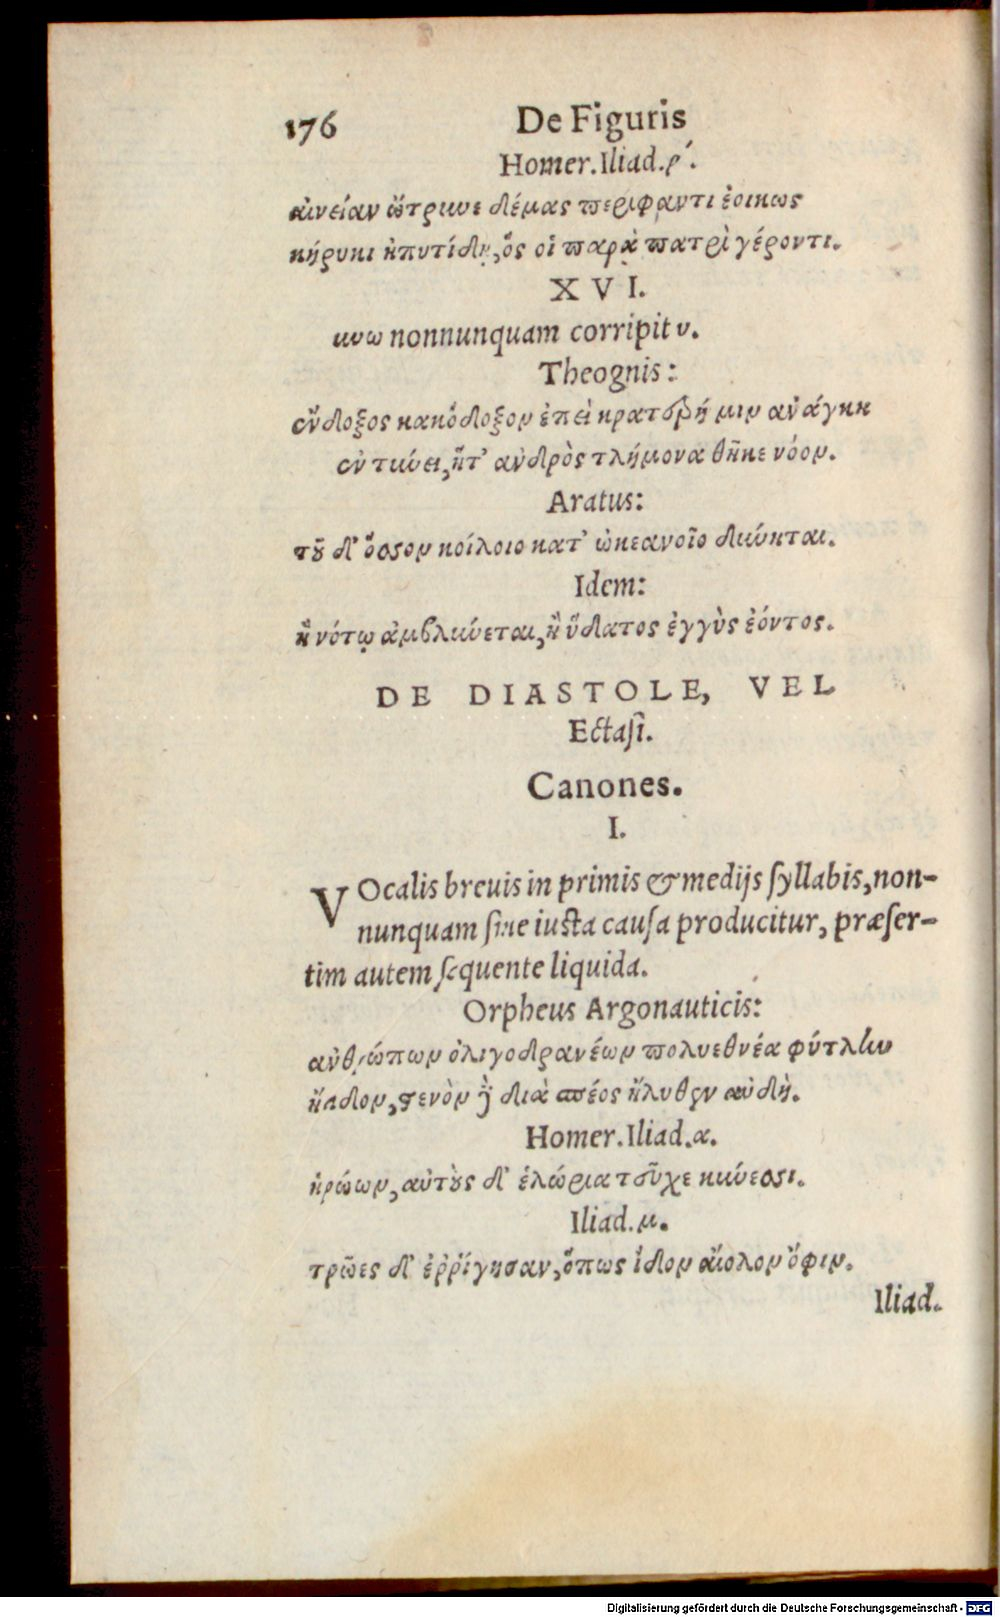 176 De Figuris
Homer. Iliad. ρ´.
αἰνείαν ὤτρυνε δέμας περίφαντι ἐοικως
κήρυκι ἠπυτίδῃ, ὅς οἱ παρὰ πατρὶ γέροντι.
XVI.
υνω nonnunquam corripit υ.
Theognis:
ἔνδοξος κακόδοξον ἐπεὶ κρατερή μιν ἀνάγκη
ἐντύνει, ἥτ' ἀνδρὸς τλήμονα θῆκε νόον.
Aratus:
τοῦ δ' ὅσσον κοίλοιο κατ' ὠκεανοῖο δύνηται.
Idem:
ἢ νότῳ ἀμβλύνεται, ἢ ὕδατος ἐγγὺς ἐόντος.
DE DIASTOLE, VEL
Ectasi.
Canones.
I.
VOcalis breuis in primis & medijs syllabis, non-
nunquam sine iusta causa producitur, præser-
tim autem sequente liquida.
Orpheus Argonauticis:
ἀνθρώπων ὀλιγοδρανέων πολυεθνέα φύτλην
ἤειδον, στενὸν ἢ διὰ σπέος ἤλυθον αὐδὴ.
Homer. Iliad. α.
ἡρώων, αὐτοὺς δ' ἑλώρια τεῦχε κύνεσσι.
Iliad. μ.
τρῶες δ' ἐῤῥίγησαν, ὅπως ἴδον αἴολον ὄφιν.
Iliad.
Digitalisierung gefördert durch die Deutsche Forschungsgemeinschaft - DFG